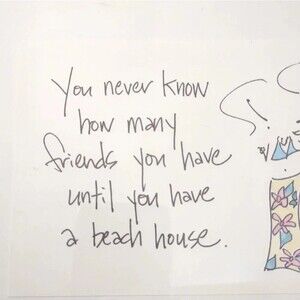 You never know
how many
friends you have
until you have
a beach house.